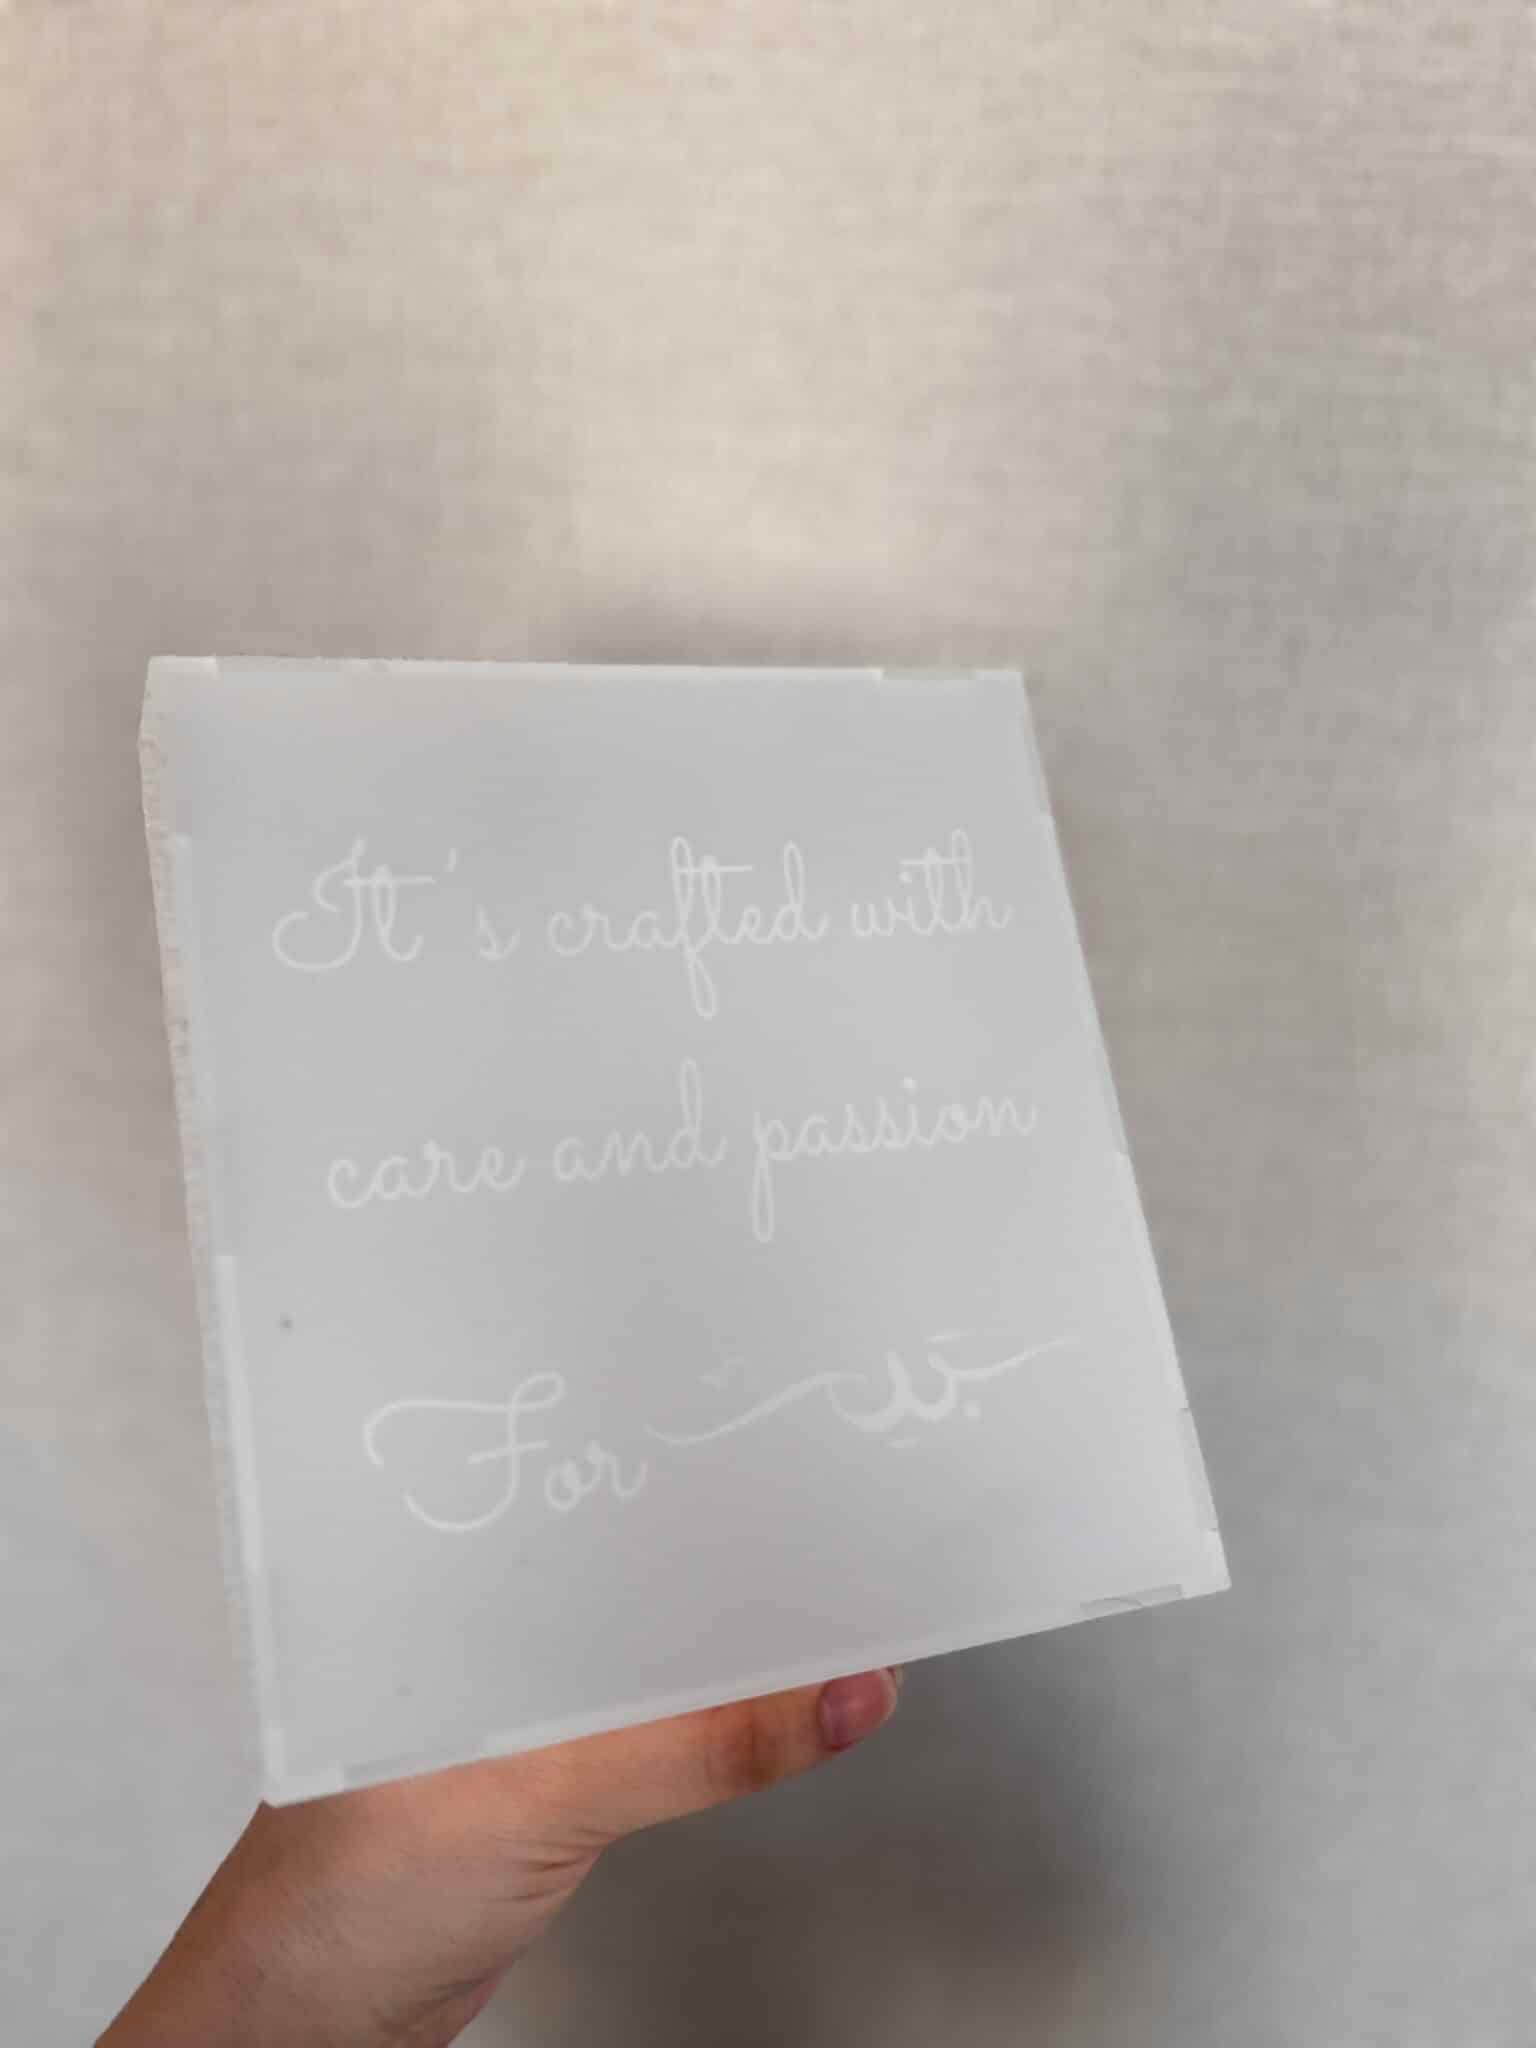 It's crafted with
care and passion
For